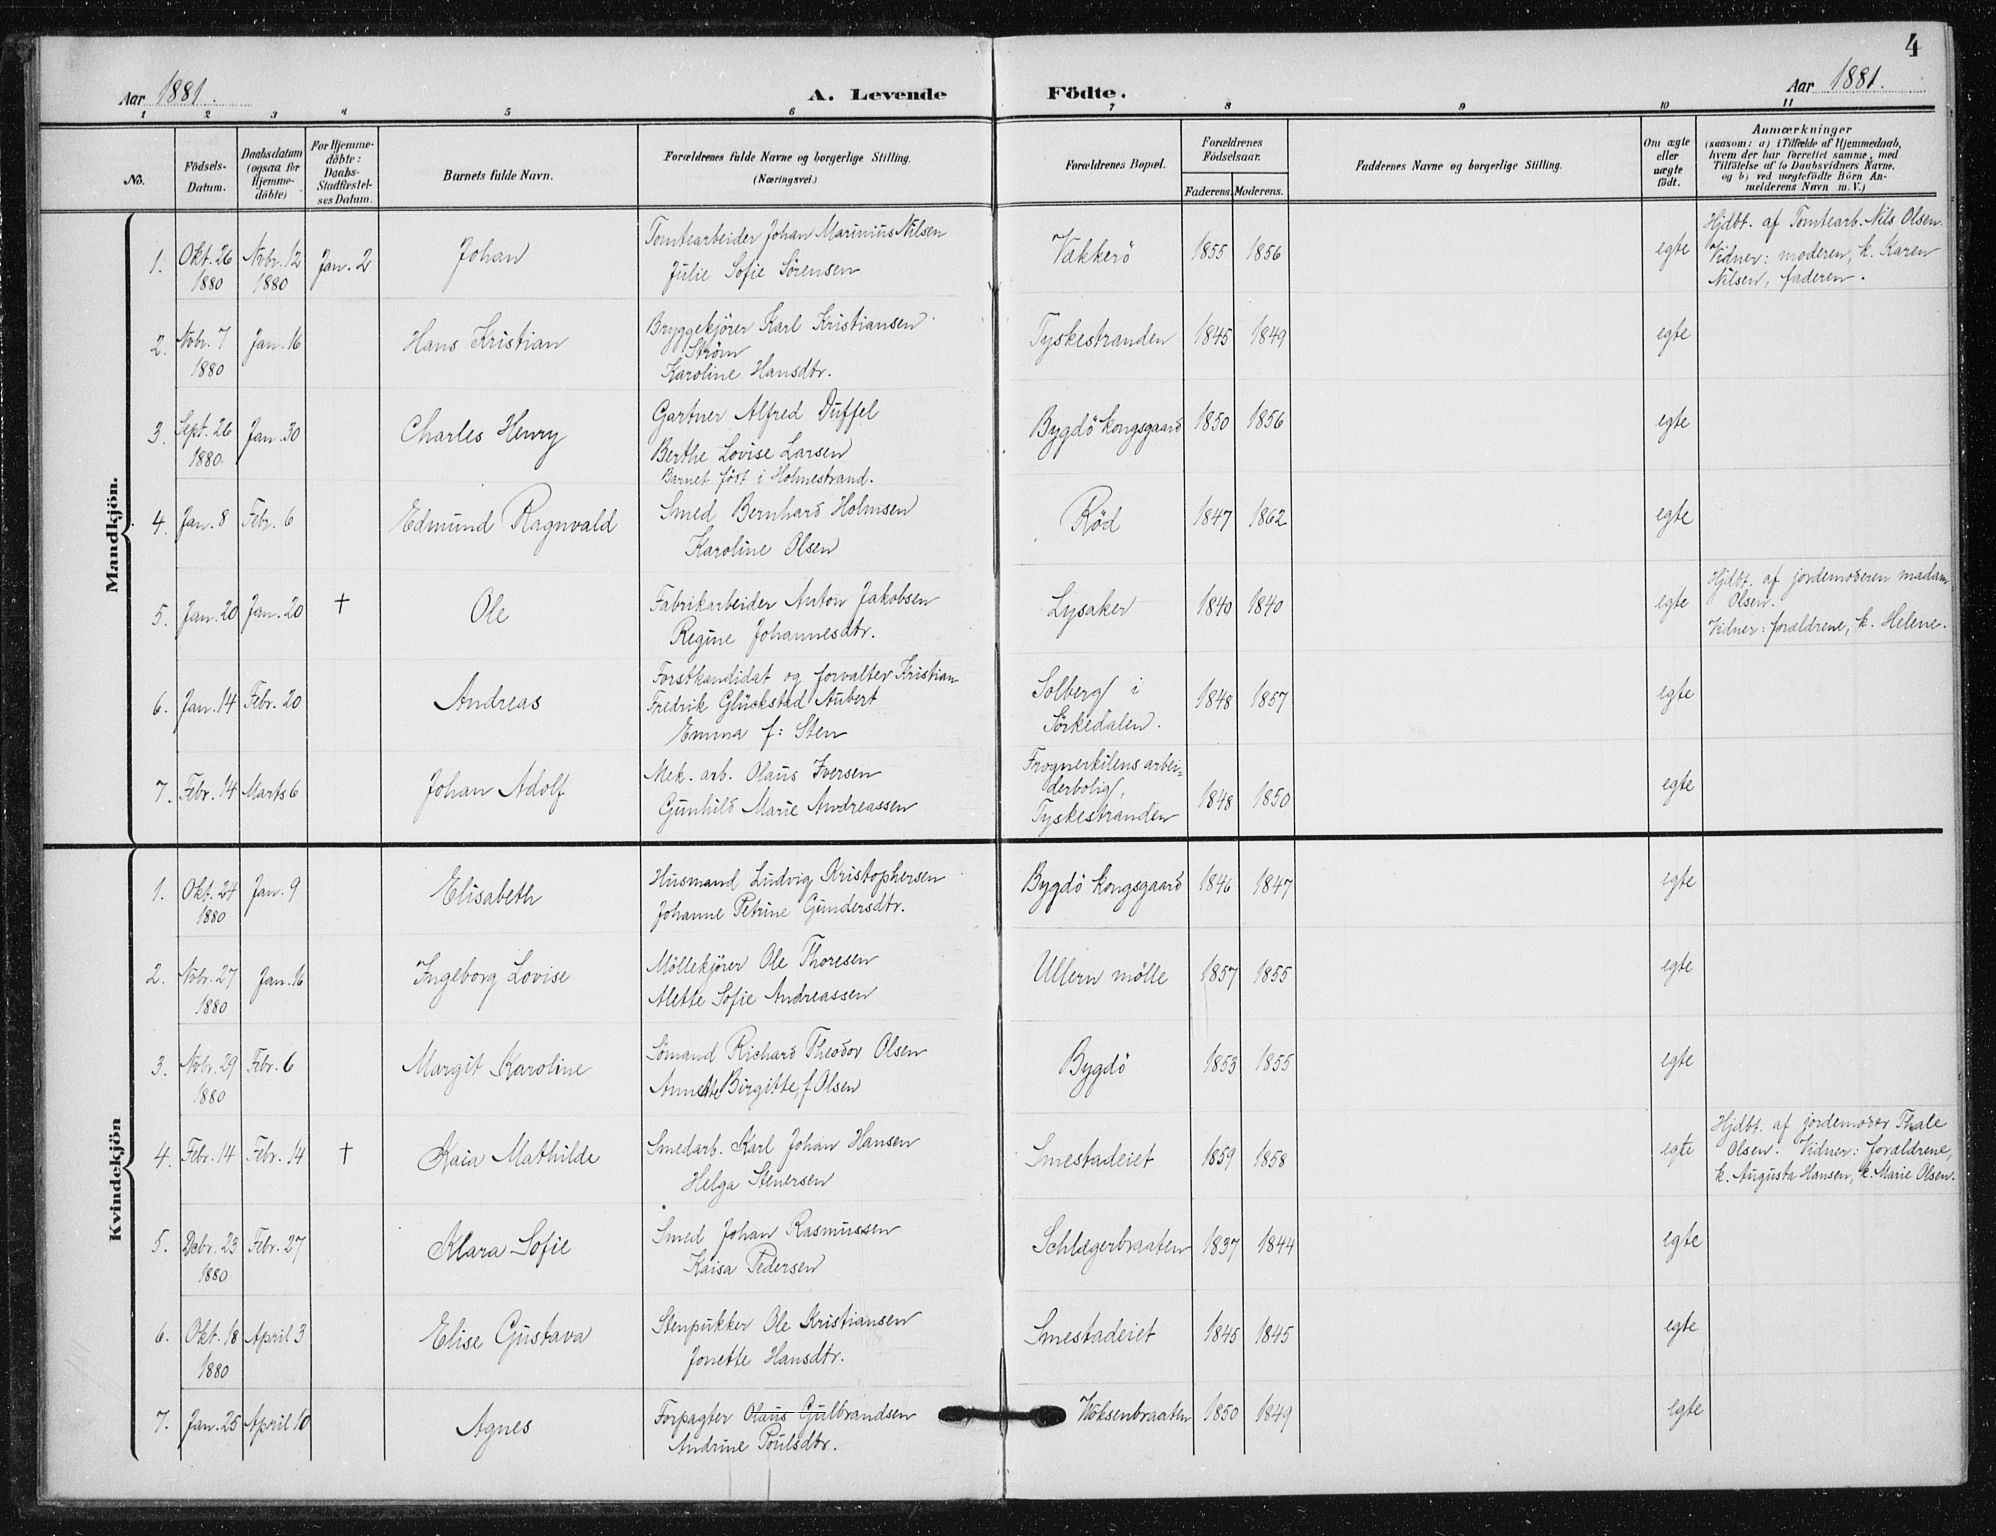 4
Aar 1881.
A. Levende Födte.
Aar 1881.
1 2 3 4 5 6 7 8 9 10 11
No.
Födsels-
Datum.
Daabsdatum
(ogsaa for
Hjemme-
döbte)
For Hjemme-
döbte:
Daabs-
Stadfæstel-
ses Datum.
Barnets fulde Navn.
Forældrenes fulde Navne og borgerlige Stilling.
(Næringsvei.)
Forældrenes Bopæl.
Forældrenes
Födselsaar.
Faderens. Moderens.
Faddernes Navne og borgerlige Stilling.
Om ægte
eller
uægte
födt.
Anmærkninger
(saasom: a) i Tilfælde af Hjemmedaab,
hvem der har forrettet samme, med
Tilföielse af to Daabsvidners Navne.
og b) ved uægtefödte Börn An-
melderens Navn m. V.)
Mandkjön.
1. Okt. 26 1880 Nobr. 12 1880 Jan. 2 Johan
Tomtearbeider Johan Marinius Nilsen
Julie Sofie Sørensen
Vækkerö 1855 1856 egte
Hjdbt. af Tomtearb. Nils Olsen.
Vidner: moderen, k. Karen
Nilsen, faderen.
2. Nobr. 7 1880 Jan. 16 Hans Kristian
Bryggekjörer Karl Kristiansen
Ström
Karoline Hansdtr.
Tyskestranden 1845 1849 egte
3. Sept. 26 1880. Jan. 30 Charles Henry
Gartner Alfred Duffel
Berthe Lovise Larsen
Barnet föst i Holmestrand.
Bygdö Kongsgaard 1850 1856 egte
4. Jan. 8 Febr. 6 Edmund Ragnvald
Smed Bernhard Holmsen
Karoline Olsen
Röd 1847 1862 egte
5. Jan. 20 Jan. 20 † Ole
Fabrikarbeider Anton Jakobsen
Regine Johannesdtr.
Lysaker 1840 1840 egte
Hjdbt. af jordemoderen madam
Olsen.
Vidner: forældrene, k. Helene.
6. Jan. 14 Febr. 20 Andreas
Forstkandidat og forvalter Kristian
Fredrik Glückstad Aubert
Emma f: Sten
Solberg i
Sörkedalen. 1848 1857 egte
7. Febr. 14 Marts 6 Johan Adolf
Mek. arb. Olaus Iversen
Gunhild Marie Andreassen
Frognerkilens arbei=
derbolig,
Tyskestranden 1848 1850 egte
Kvindekjön
1. Okt. 24 1880 Jan. 9 Elisabeth
Husmand Ludvig Kristophersen
Johanne Petrine Gundersdtr.
Bygdö Kongsgaard 1846 1847 egte
2. Nobr. 27 1880 Jan. 16 Ingeborg Lovise
Möllekjörer Ole Thoresen
Alette Sofie Andreassen
Ullern mölle 1857 1855 egte
3. Nobr. 29 1880 Febr. 6 Margit Karoline
Sömand Richard Theodor Olsen
Annette Birgitte, f. Olsen
Bygdö 1853 1855 egte
4. Febr. 14 Febr. 14 † Kaia Mathilde
Smedarb. Karl Johan Hansen
Helga Stenersen
Smestadeiet 1859 1858 egte
Hjdbt. af jordemoder Thale
Olsen. Vidner: forældrene,
k. Augusta Hansen, k. Marie Olsen.
5. Debr. 23 1880 Febr. 27 Klara Sofie
Smed Johan Rasmussen
Kaisa Pedersen
Schlægerbraaten 1837 1844 egte
6. Okt. 18 1880 April 3 Elise Gustava
Stenpukker Ole Kristiansen
Jonette Hansdtr.
Smestadeiet 1845 1845 egte
7. Jan. 25 April 10 Agnes
Forpagter Olaus Gulbrandsen
Andrine Poulsdtr.
Voksenbraaten 1850 1849 egte